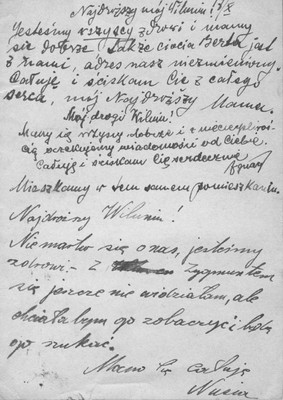 Najdroższy mój Wiluniu!
Jesteśmy wszyscy zdrowi i mamy
się dobrze. Także ciocia Berta jest
z nami, adres nasz niezmieniony.
Całuję i ściskam Cię z całego
serca, mój Najdroższy Mama.
Mój drogi Wiluniu!
Mamy się wszyscy dobrze i z niecierpliwoś-
cią oczekujemy wiadomości od Ciebie.
Całuję i ściskam Cię serdecznie
Mieszkamy w tem samem pomieszkaniu.
Najdroższy Wiluniu!
Niemartw się o nas, jesteśmy
zdrowi. – Z Zygmuntem
się jeszcze nie widziałam, ale
chciałabym go zobaczyć i będę
go szukać.
Mocno Cię całuję
Nusia